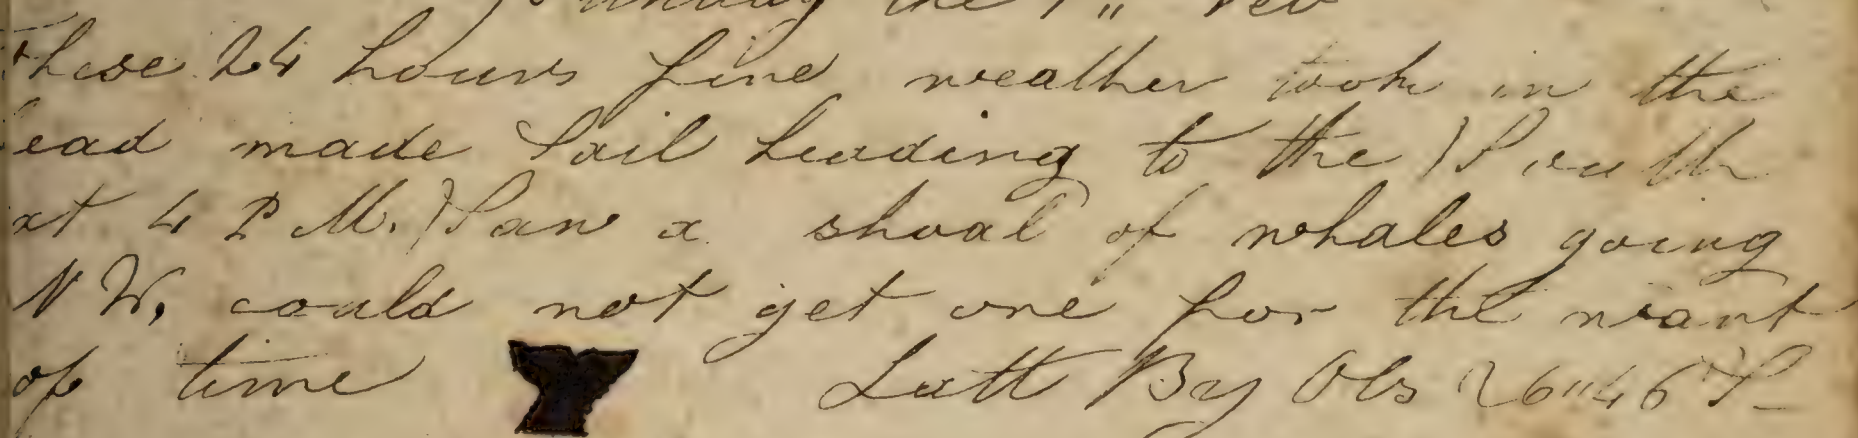 the 1" Feb
These 24 hours fine weather took in the
head made Sail heading to the South
at 4 P M. Saw a shoal of whales going
N W. could not get one for the want
of time Latt By Obs 26"46 S